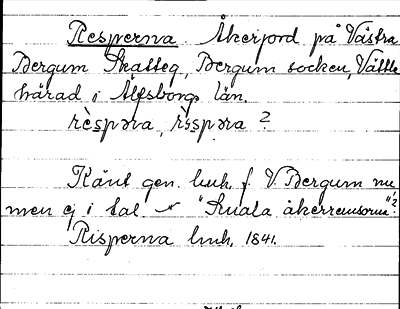 Resperna Åkerjord på Västra
Bergum Skatteg, Bergum socken, Vättle
härad i Älfsborgs län.
rèspəra, rìspəra ?
Känt gen. huk. f. V. Bergum nu
men ej i tal. "Smala åkerremsorna"?
Risperna huk. 1841.